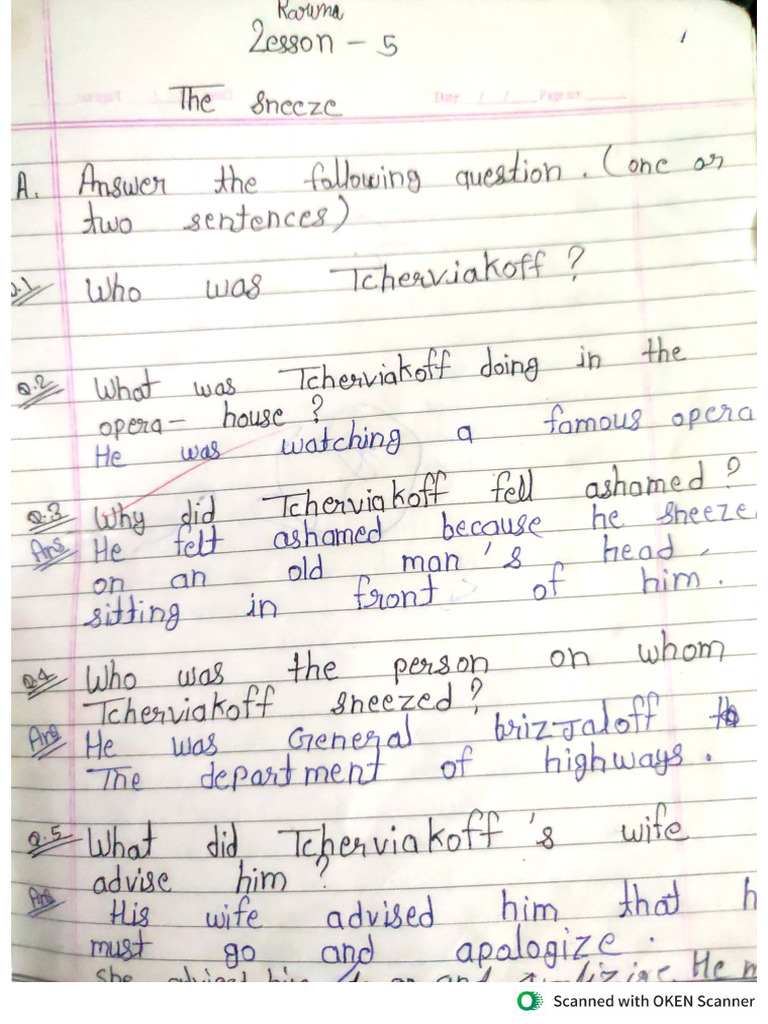 Karuna
Lesson - 5
The Sneeze
Date / / Page no
A. Answer the following question. (one or
two sentences)
Q.1 Who was Tcherviakoff?
Q.2 What was Tcherviakoff doing in the
opera- house?
He was watching a famous opera
Q.3 Why did Tcherviakoff fell ashamed?
Ans He felt ashamed because he sneeze
on an old man's head,
sitting in front of him.
Q.4 Who was the person on whom
Tcherviakoff sneezed?
Ans He was General brizJaloff
The department of highways.
Q.5 What did Tcherviakoff's wife
advise him?
Ans His wife advised him that h
must go and apologize.
She advised him to go and He m
Scanned with OKEN Scanner